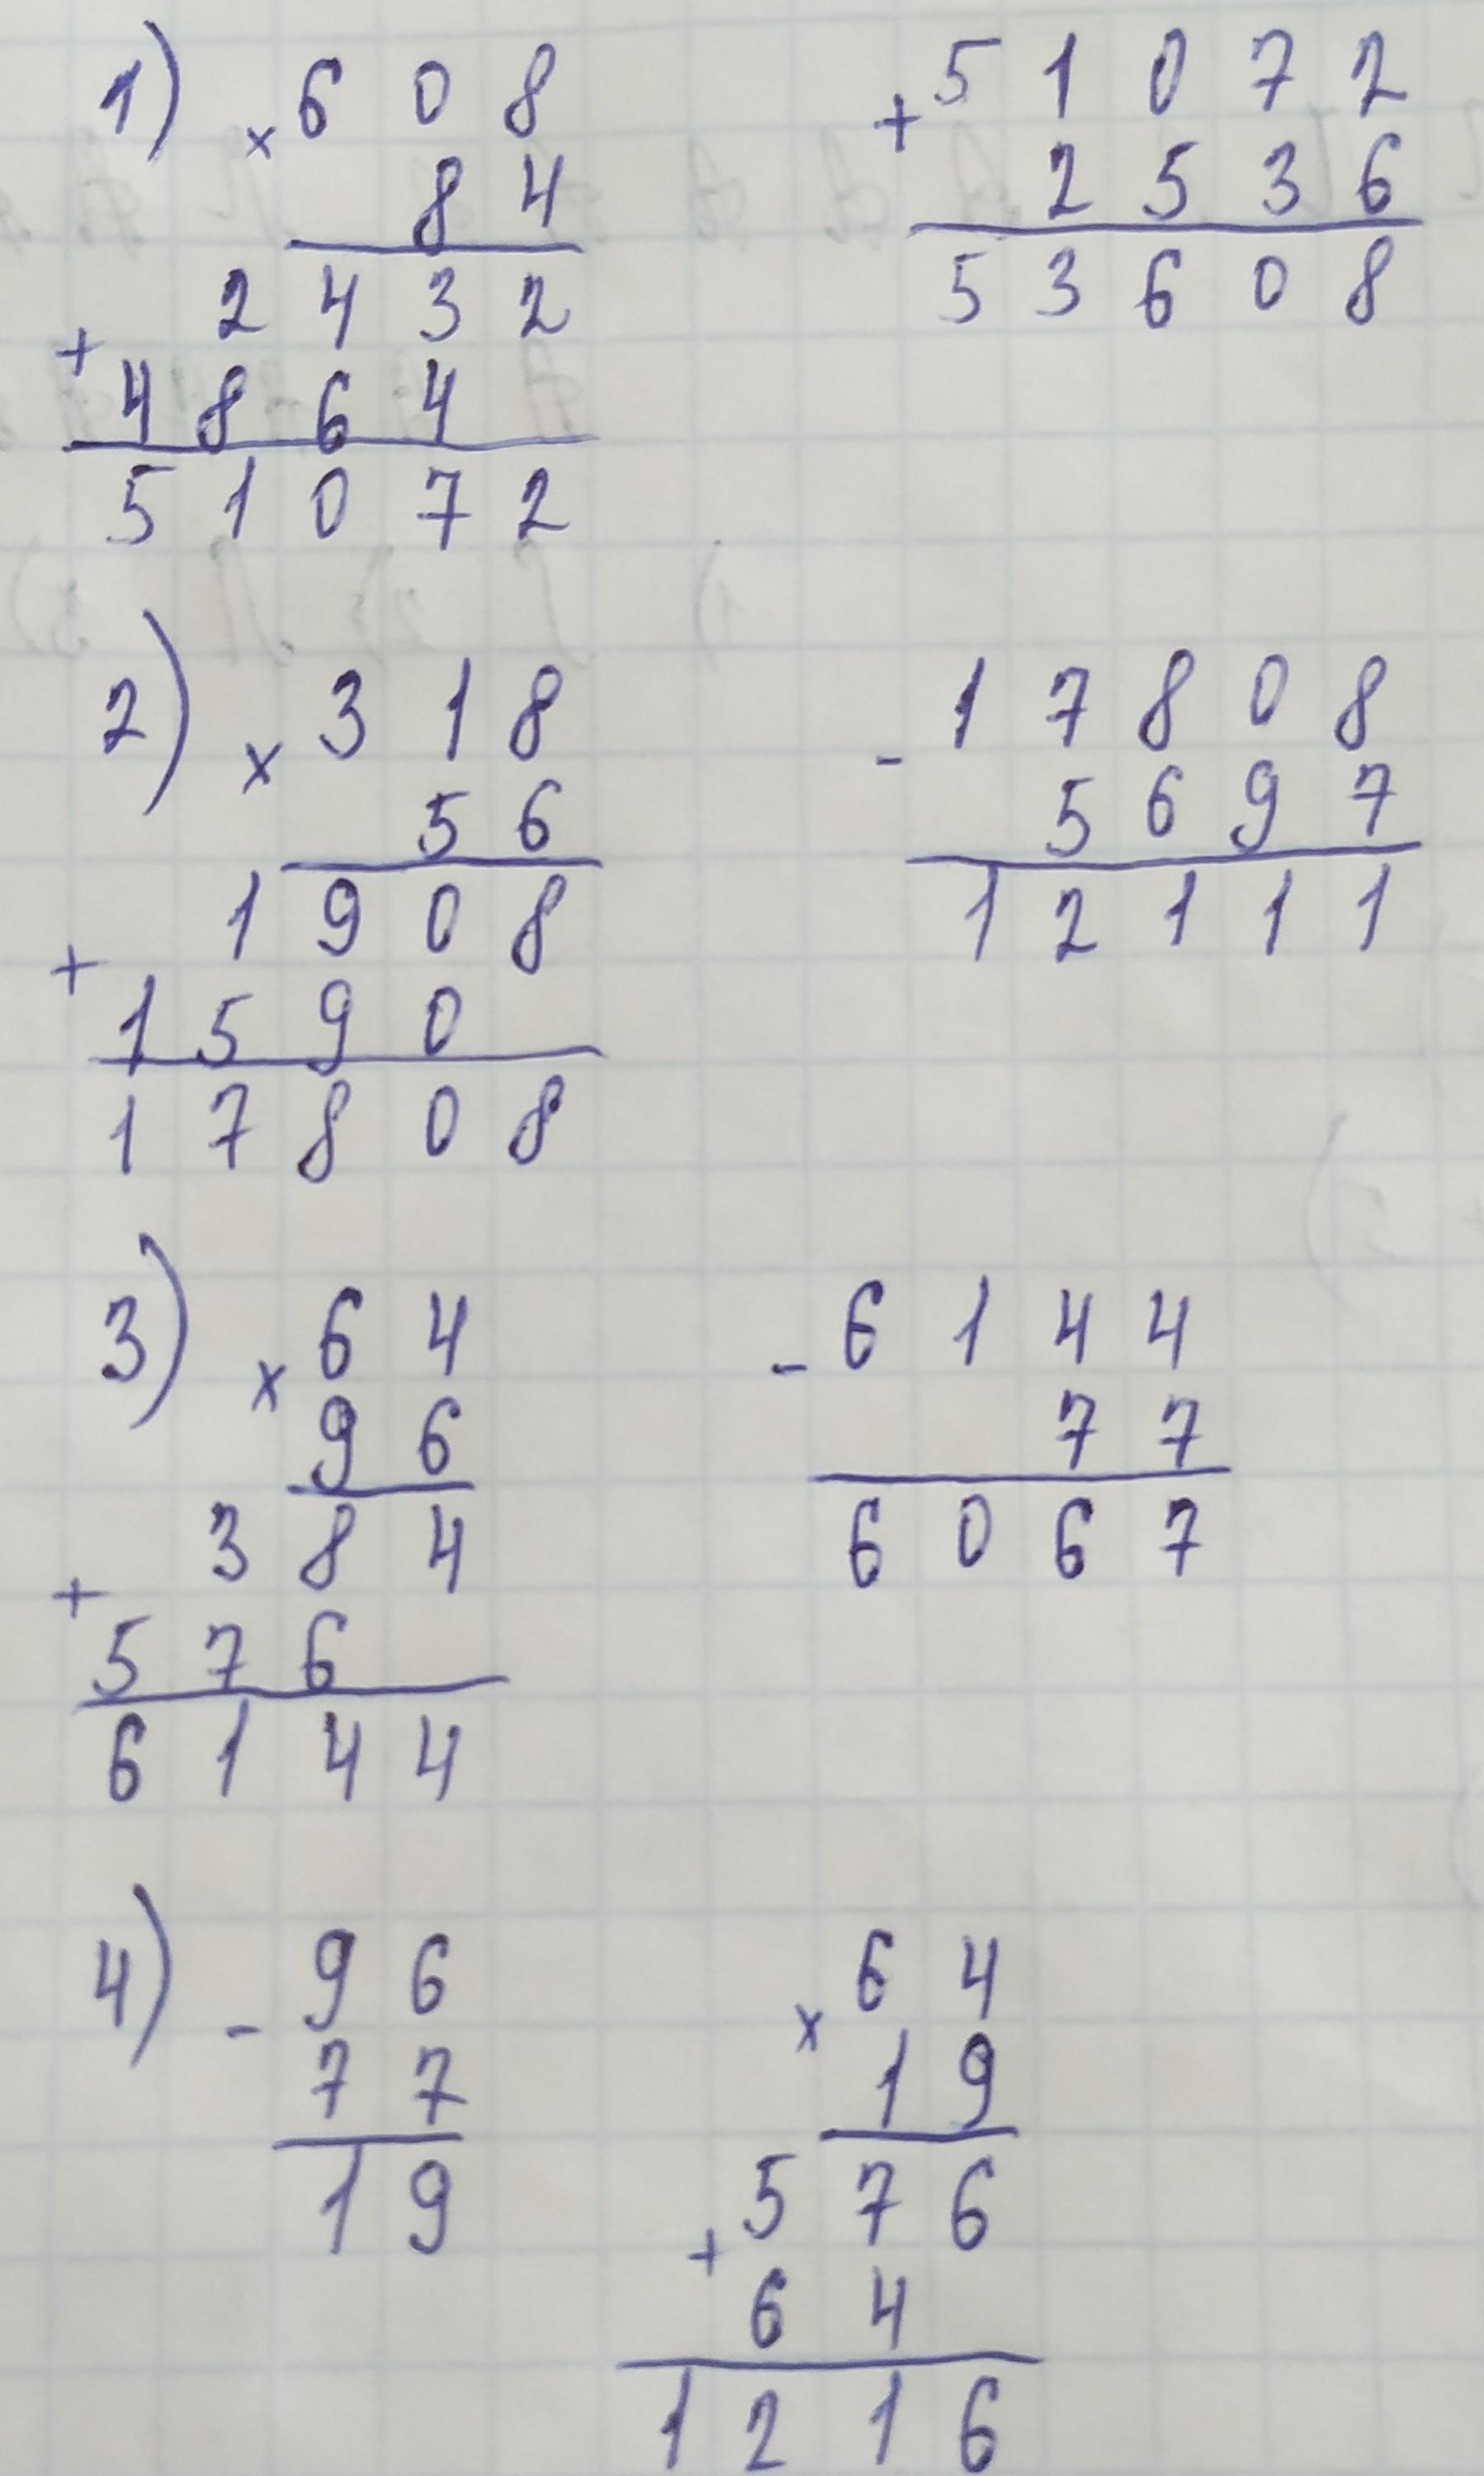 1) × 6 0 8
8 4
+ 2 4 3 2
4 8 6 4
5 1 0 7 2
+ 5 1 0 7 2
2 5 3 6
5 3 6 0 8
2) × 3 1 8
5 6
+ 1 9 0 8
1 5 9 0
1 7 8 0 8
- 1 7 8 0 8
5 6 9 7
1 2 1 1 1
3) × 6 4
9 6
+ 3 8 4
5 7 6
6 1 4 4
- 6 1 4 4
7 7
6 0 6 7
4) - 9 6
7 7
1 9
× 6 4
1 9
+ 5 7 6
6 4
1 2 1 6